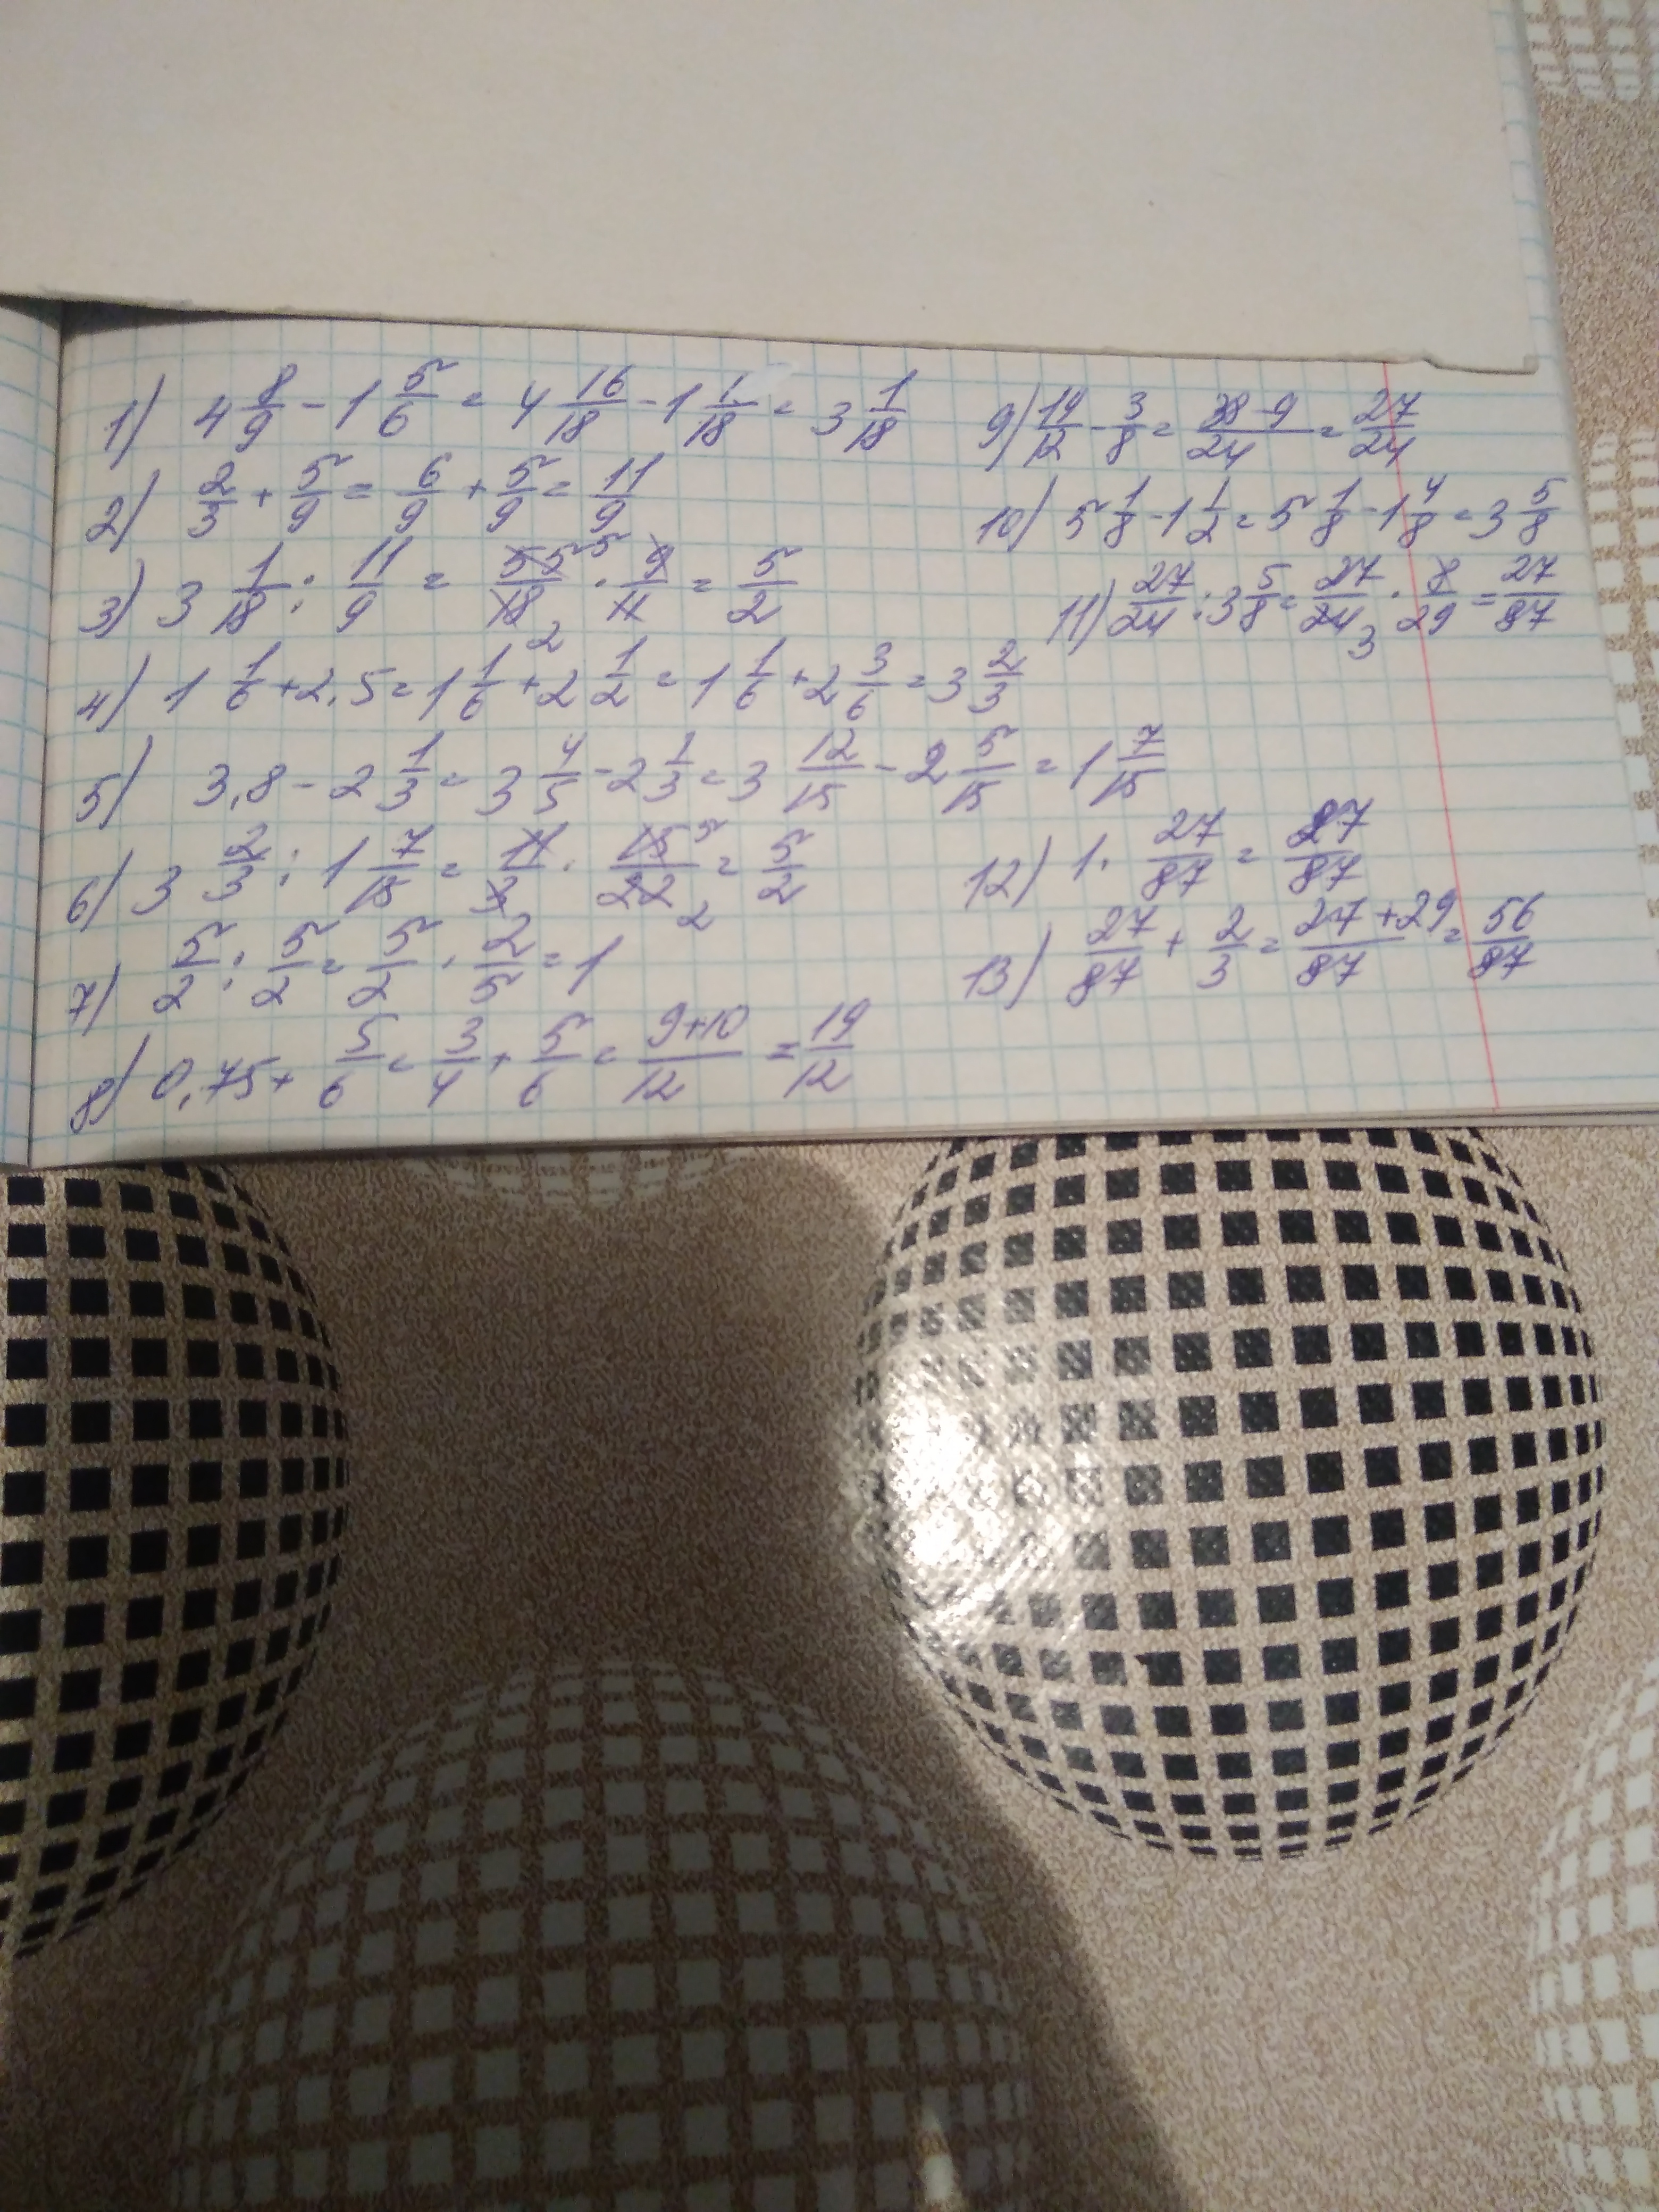 1) 4 8/9 - 1 5/6 = 4 16/18 - 1 1/18 = 3 1/18
2) 2/3 + 5/9 = 6/9 + 5/9 = 11/9
3) 3 1/18 : 11/9 = 55/18 · 9/11 = 5/2
4) 1 1/6 + 2,5 = 1 1/6 + 2 1/2 = 1 1/6 + 2 3/6 = 3 2/3
5) 3,8 - 2 1/3 = 3 4/5 - 2 1/3 = 3 12/15 - 2 5/15 = 1 7/15
6) 3 2/3 : 1 7/15 = 11/3 · 15/22 = 5/2
7) 5/2 : 5/2 = 5/2 · 2/5 = 1
8) 0,75 + 5/6 = 3/4 + 5/6 = 9+10/12 = 19/12
9) 19/12 - 3/8 = 38-9/24 = 27/24
10) 5 1/8 - 1 1/2 = 5 1/8 - 1 4/8 = 3 5/8
11) 27/24 : 3 5/8 = 27/24 · 8/29 = 27/87
12) 1 · 27/87 = 27/87
13) 27/87 + 2/3 = 27+29/87 = 56/87